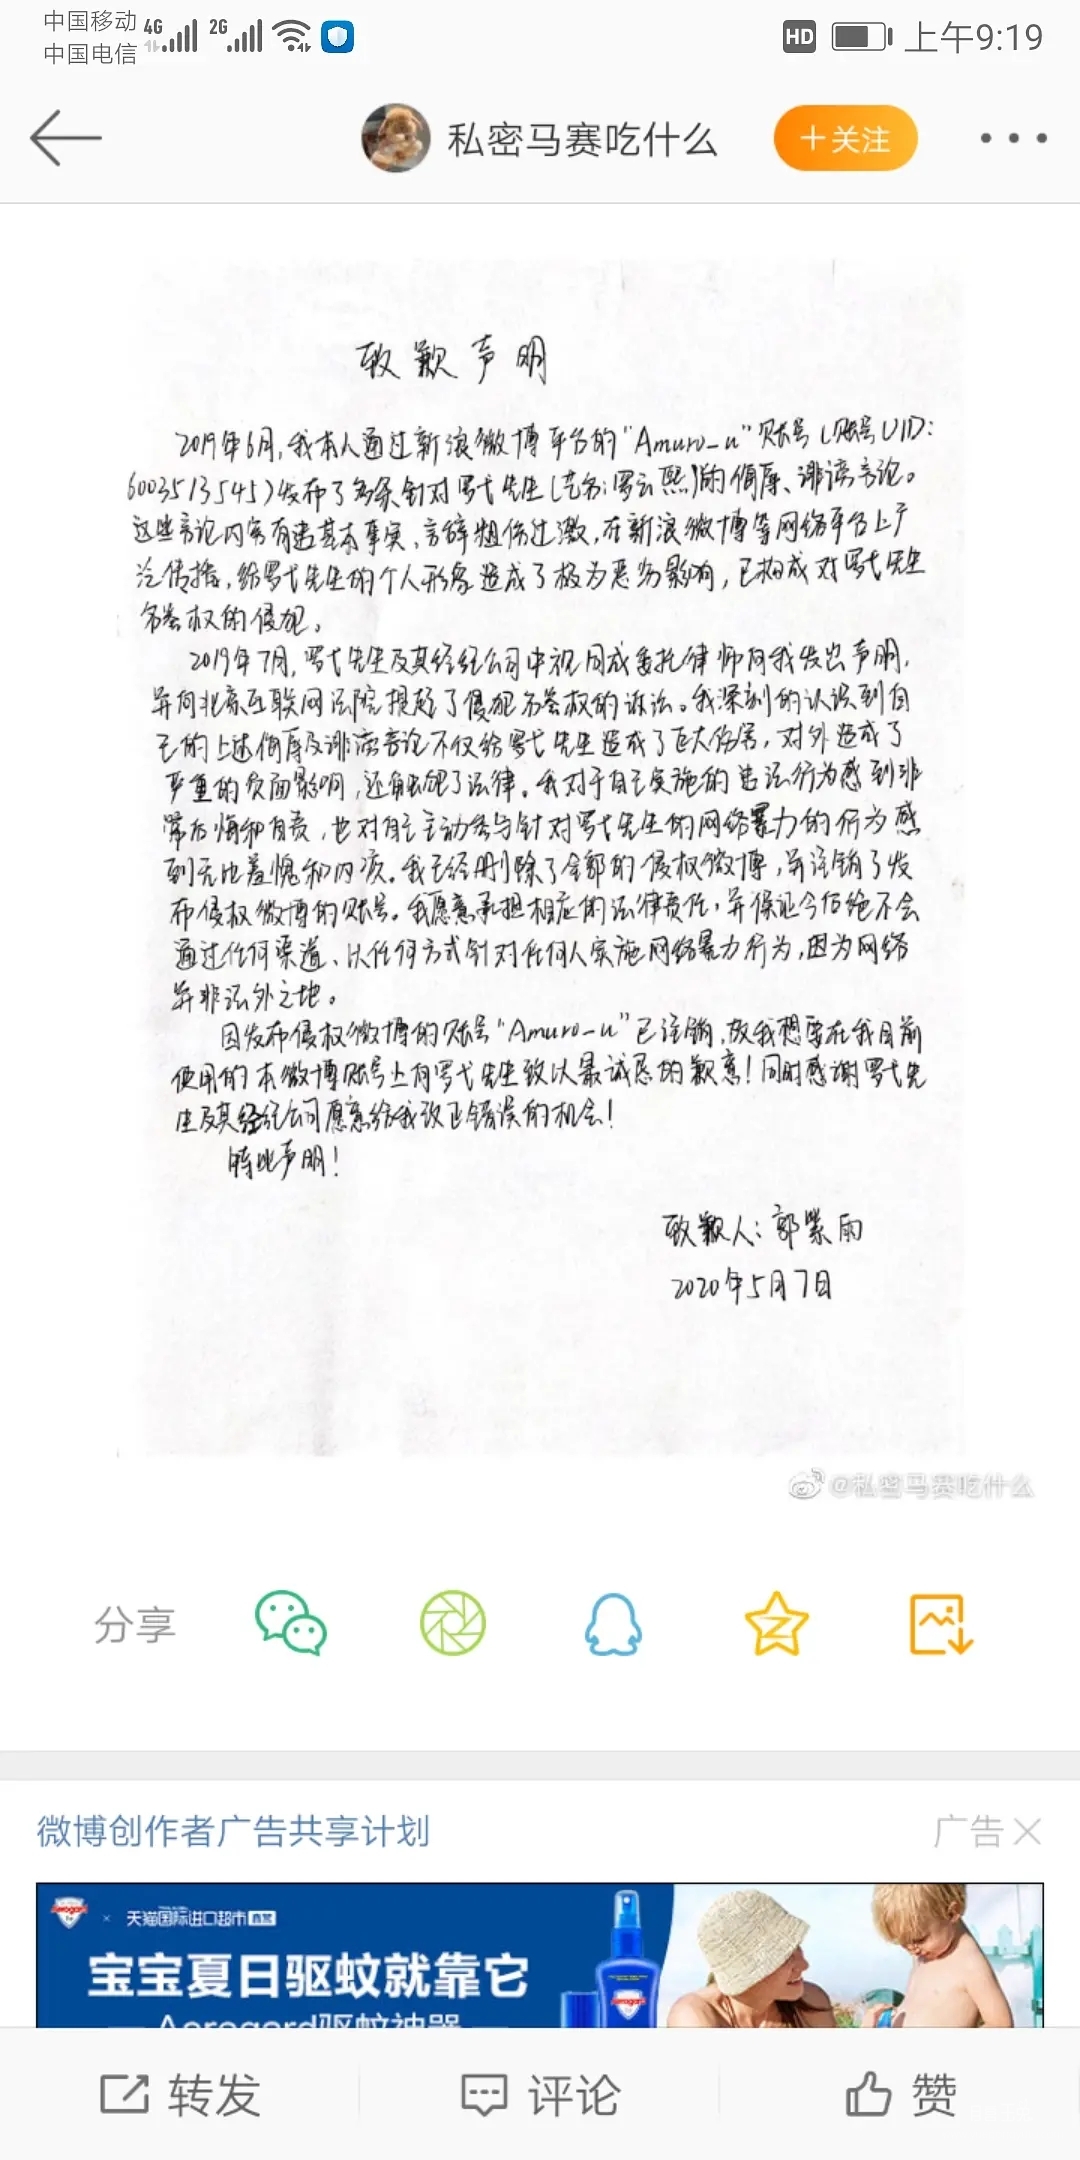 中国移动 4G 2G HD 上午9:19
中国电信
私密马赛吃什么 +关注
致歉声明
2019年6月,我本人通过新浪微博平台的“Amuro-u”账号(账号UID:
6003513545)发布了多条针对罗弋先生(艺名:罗云熙)的侮辱、诽谤言论。
这些言论内容有违基本事实、言辞粗俗过激,在新浪微博等网络平台上广
泛传播,给罗弋先生的个人形象造成了极为恶劣影响,已构成对罗弋先生
名誉权的侵犯。
2019年7月,罗弋先生及其经纪公司中视同成委托律师向我发出声明,
并向北京互联网法院提起了侵犯名誉权的诉讼。我深刻的认识到自
己的上述侮辱及诽谤言论不仅给罗弋先生造成了巨大伤害,对外造成了
严重的负面影响,还触犯了法律。我对于自己实施的违法行为感到非
常后悔和自责,也对自己主动参与针对罗弋先生的网络暴力的行为感
到无比羞愧和内疚。我已经删除了全部的侵权微博,并注销了发
布侵权微博的账号。我愿意承担相应的法律责任,并保证今后绝不会
通过任何渠道、以任何方式针对任何人实施网络暴力行为,因为网络
并非法外之地。
因发布侵权微博的账号“Amuro-u”已注销,故我想要在我目前
使用的本微博账号上向罗弋先生致以最诚恳的歉意!同时感谢罗弋先
生及其经纪公司愿意给我改正错误的机会!
特此声明!
致歉人:郭紫雨
2020年5月7日
@私密马赛吃什么
分享
微博创作者广告共享计划 广告
Aerogard × 天猫国际进口超市 直营
宝宝夏日驱蚊就靠它
Aerogard驱蚊神器
转发 评论 赞